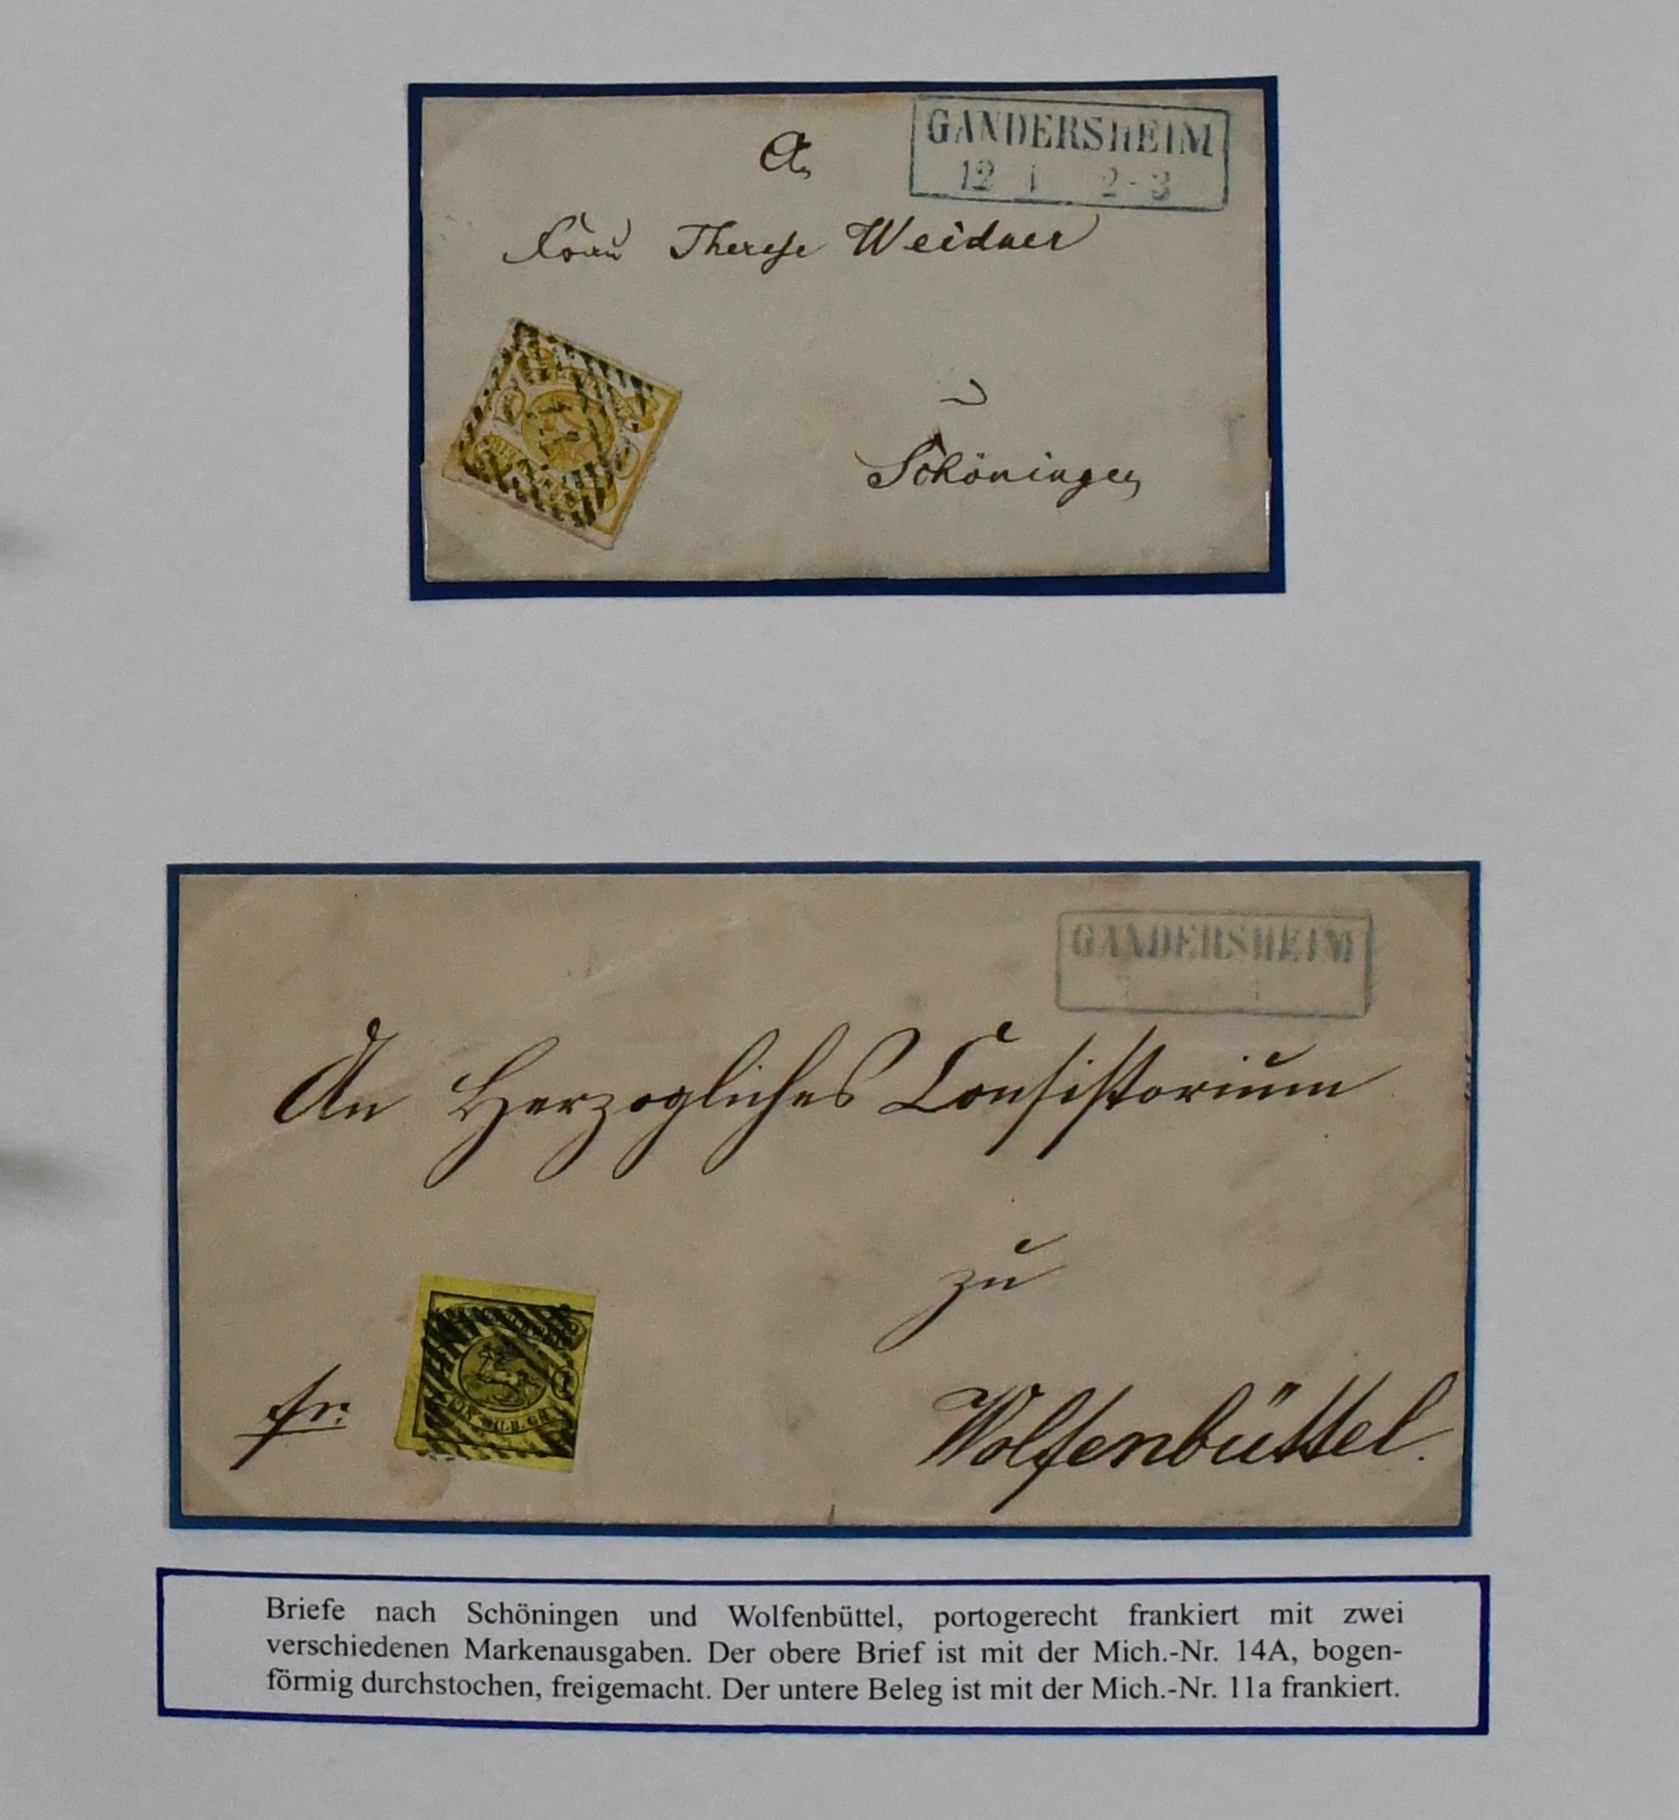 GANDERSHEIM
12 1 2-3
An
Frau Therese Weidner
Schöningen
GANDERSHEIM
An Herzogliches Consistorium
zu
Wolfenbüttel.
fr.
1
EIN SILB. GR.
Briefe nach Schöningen und Wolfenbüttel, portogerecht frankiert mit zwei
verschiedenen Markenausgaben. Der obere Brief ist mit der Mich.-Nr. 14A, bogen-
förmig durchstochen, freigemacht. Der untere Beleg ist mit der Mich.-Nr. 11a frankiert.